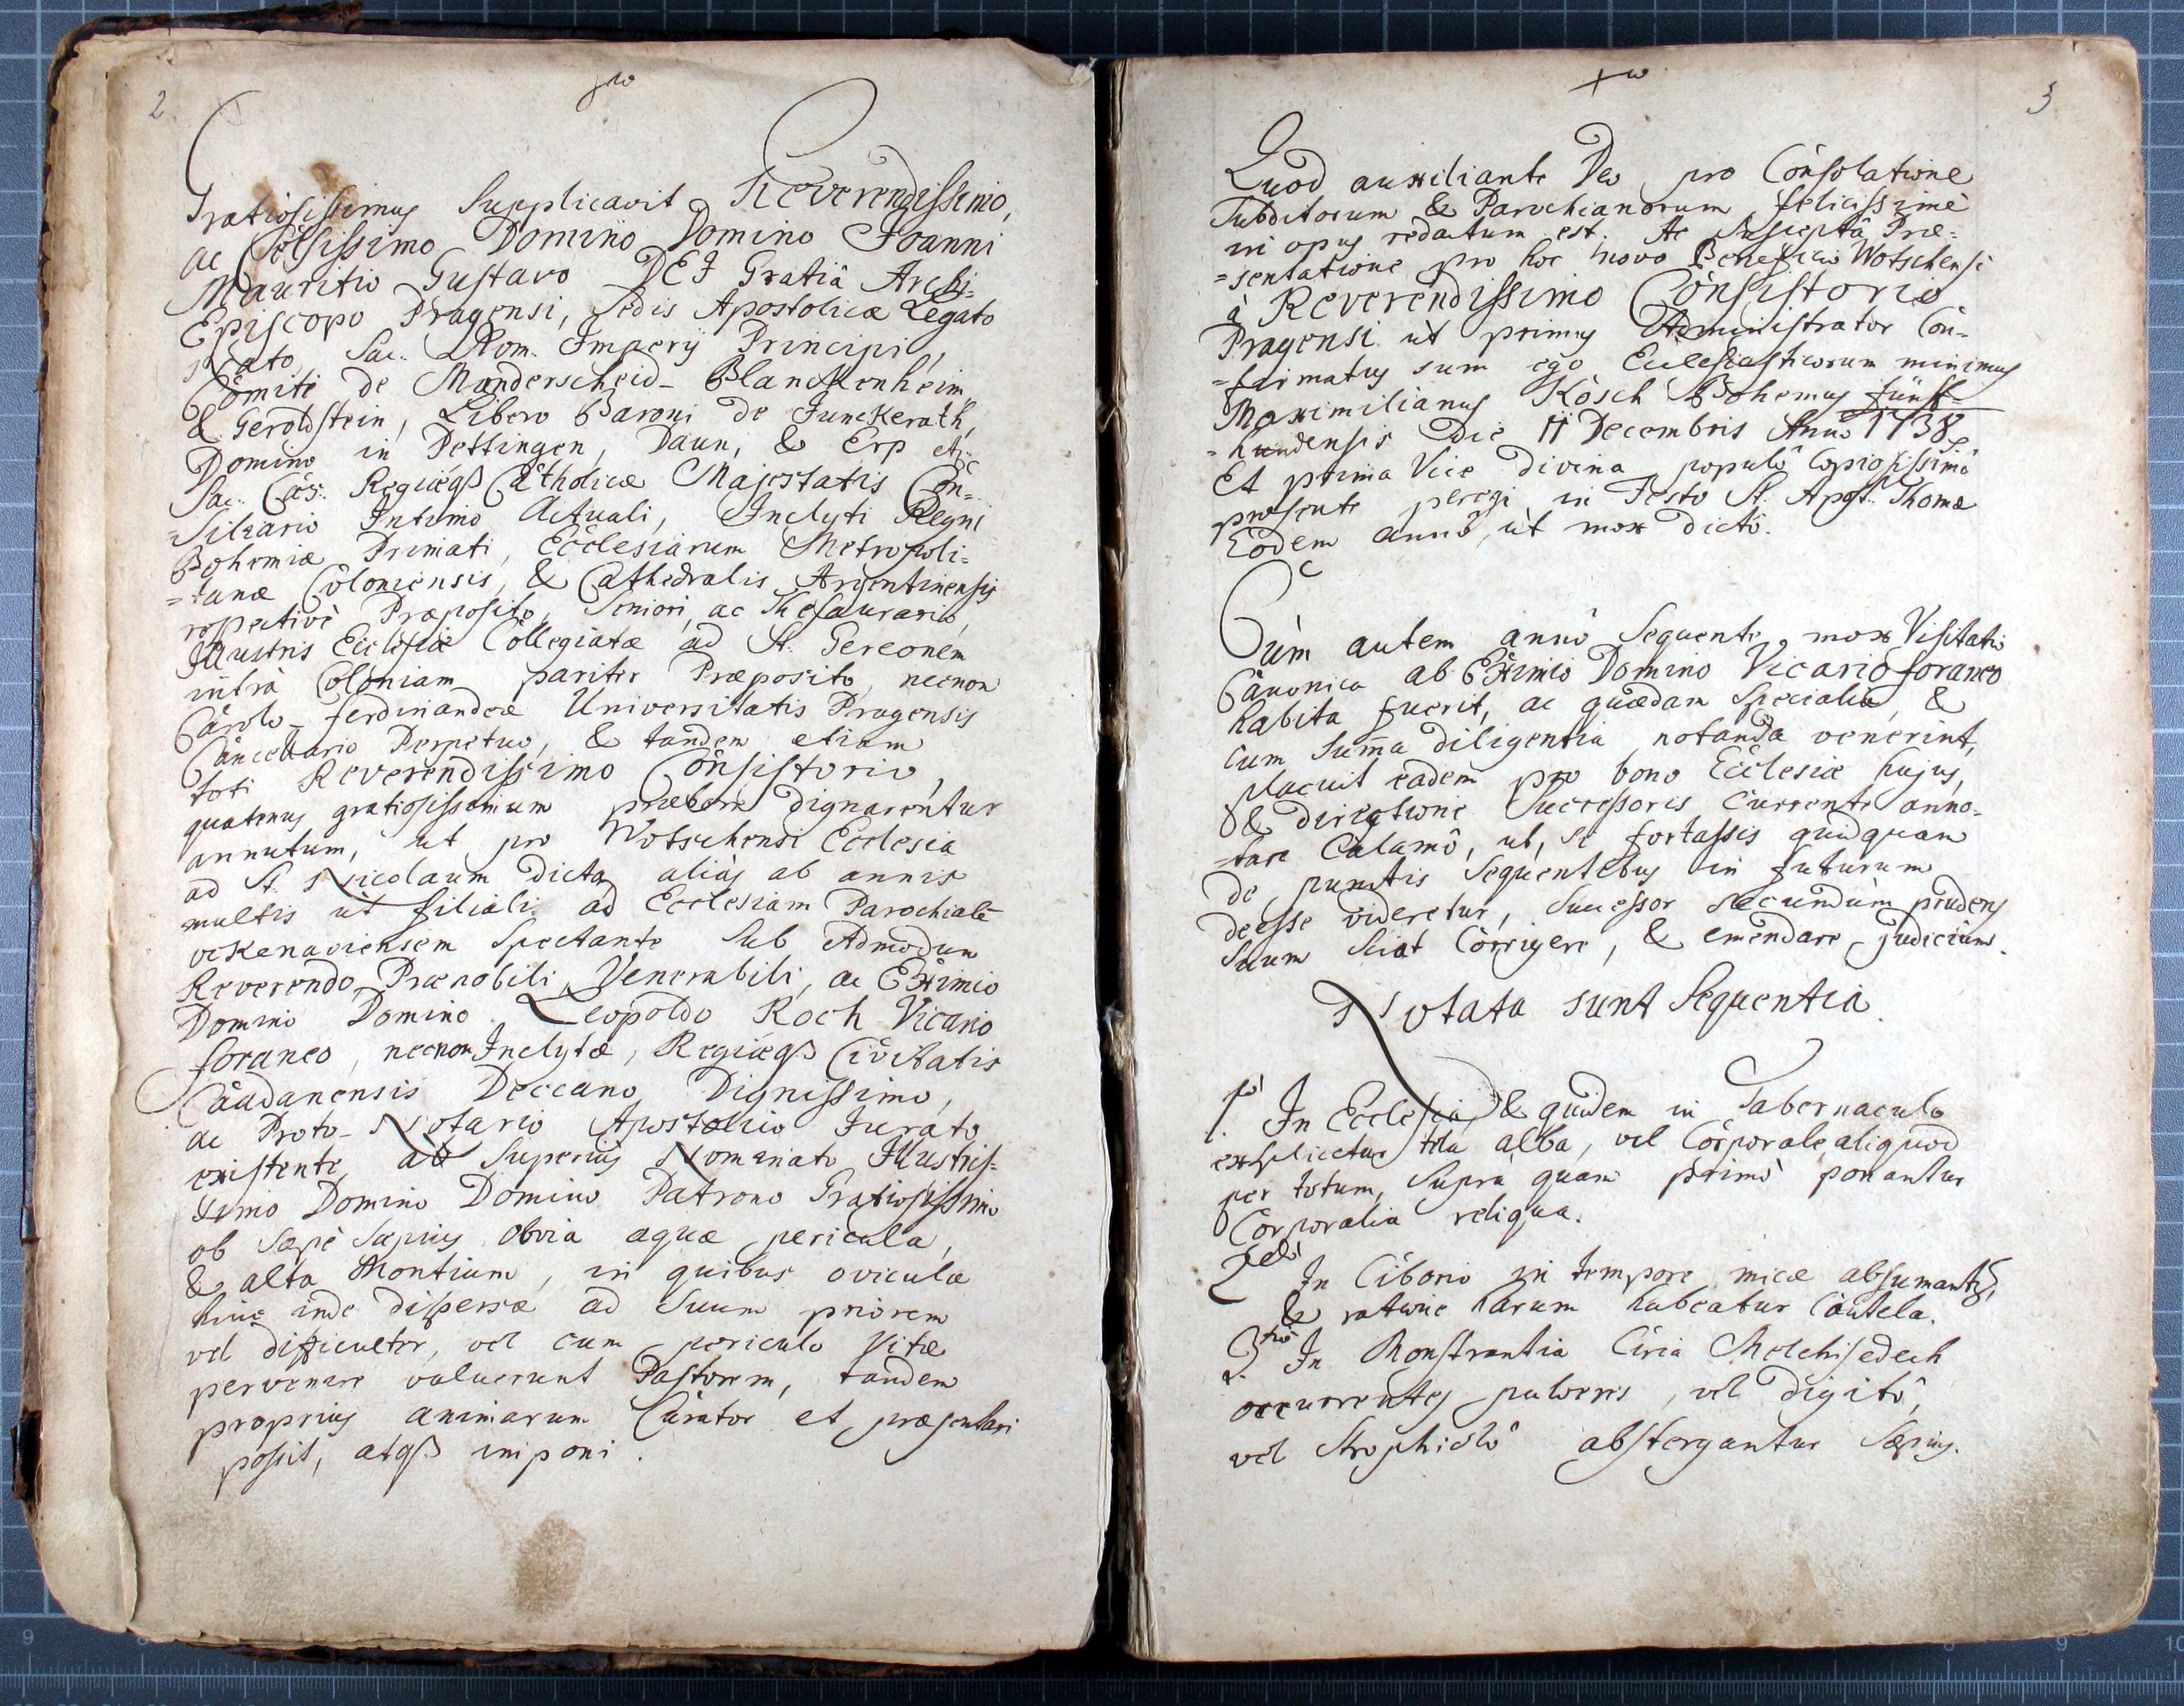 2.
Gratiosissimus Supplicavit Reverendissimo,
ac Celsissimo Domino Domino Joanni
Mauritio Gustavo DEI Gratiâ Archi=
Episcopo Pragensi, Sedis Apostolicæ Legato
Nato, Sac. Rom. Imperij Principi,
Comiti de Manderscheid- Blanckenheim
& Geroldstein, Libero Baroni de Junckerath,
Domino in Dettingen, Daun, & Erp etc
Sac. Cæs. Regiæqß Catholicæ Majestatis Con=
=Siliario Intimo Actuali, Inclyti Regni
Bohemiæ Primati, Ecclesiarum Metropoli=
=tanæ Coloniensis, & Cathedralis Argentinensis
respectivè Præposito, Seniori, ac Thesaurario,
Illustris Ecclesiæ Collegiatæ ad St. Gereonem
intrà Coloniam pariter Præposito, necnon
Carolo-Ferdinandeæ Universitatis Pragensis
Cancellario Perpetuo, & tandem etiam
toti Reverendissimo Consistorio,
quatenus gratiosissimum præbere dignarentur
annutum, ut pro Wotschensi Ecclesia
ad St. Nicolaum dicta aliàs ab annis
multis ut filiali ad Ecclesiam Parochialẽ
okenaviensem Spectante Sub Admodum
Reverendo, Prænobili, Venerabili, ac Eximio
Domino Domino Leopoldo Koch Vicario
foraneo, necnon Inclytæ, Regiæqß Civitatis
Caadanensis Deccano Dignissimo,
ac Proto-Notario Apostolico Jurato
existente, ab Superiùs Nominato Illustris=
simo Domino Domino Patrono Gratiosissimo
ob Sæpè Sæpius obvia aquæ pericula,
& alta Montium, in quibus oviculæ
hinc inde dispersæ ad Suum priorem
vel difficulter, vel cum periculo Vitæ
pervenire valuerunt Pastorem, tandem
proprius animarum Curator et præsentari
possit, atqß imponi.
3
Quod auxiliante Deo pro Consolatione
Subditorum & Parochianorum felicissimè
in opus redactum est. Ac Susceptâ Præ=
=sentatione pro hoc novo Beneficio Wotschensi
à Reverendissimo Consistorio
Pragensi ut primus Administrator Con=
=firmatus sum ego Ecclesiasticorum minimus
Maximilianus Kosch Bohemus fünf=
=hundensis die 11 Decembris Anno 1738
Et prima Vice divina populô copiosissimô
præsente peregi in Festo St. Apst. Thomæ
Eodem annô, ut mox dictô.
Cùm autem annô Sequente mox Visitatio
Canonica ab Eximio Domino Vicario foraneo
habita fuerit, ac quædam Specialia, &
cum Summa diligentia notanda venerint,
placuit eadem pro bono Ecclesiæ hujus,
& directione Successoris Currente anno-
-tare Calamô, ut, Si fortassis quidquam
de punctis Sequentibus in futurum
deesse videretur, Successor secundùm prudens
Suum Sciat Corrigere, & emendare judicium.
Notata sunt Sequentia.
1mò In Ecclesia, & quidem in Tabernaculo
explicetur tela alba, vel Corporale aliquod
per totum, Supra quam primò ponantur
Corporalia reliqua.
2dò In Ciborio in tempore micæ absumantur,
& ratione harum habeatur Cautela.
3tiò In Monstrantia Circa Melchisedech
occurrentes pulveres, vel digitô,
vel Strophiolô abstergantur Sæpius.